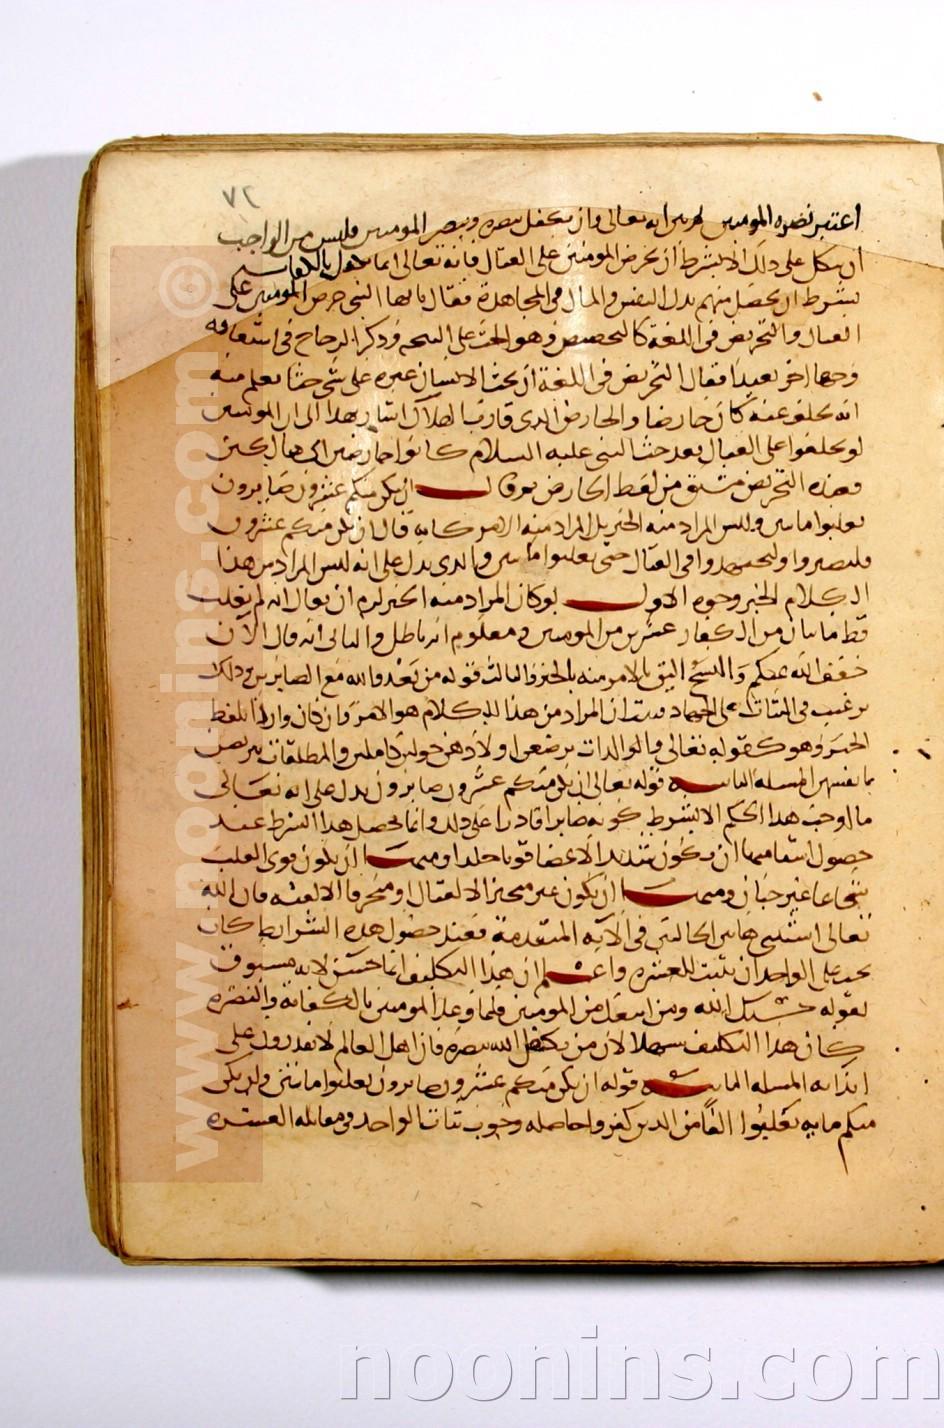 ٧٢
اعتبر نصره المومنين لم بين انه تعالى وان تكفل بنصره وبنصر المومنين فليس من الواجب
ان يتكل على ذلك الا بشرط ان يحرض المومنين على القتال فانه تعالى انما كفل بالكفايه
بشرط ان يحصل منهم بذل النفس والمال في المجاهدة فقال يا ايها النبي حرض المومنين على
القتال والتحريض في اللغة كالتحضيض وهو الحث على الشي وذكر الزجاج في اشتقاقه
وجها اخر بعيدا فقال التحريض في اللغة ان يحث الانسان غيره على شي حثا يعلم منه
انه تخلف عنه كان حارضا والحارض الذي قارب الهلاك اشار بهذا الى ان المومنين
لو تخلفوا على القتال بعد حث النبي عليه السلام كانوا حارضين اي هالكين
فهذه التحريض مشتق من لفظ الحارض ثم قال ان يكن منكم عشرون صابرون
يغلبوا مايتين وليس المراد منه الخبر بل المراد منه الامر كانه قال ان يكن منكم عشرون
فليصبروا وليجتهدوا في القتال حتى يغلبوا مايتين والذي يدل على انه ليس المراد من هذا
الكلام الخبر وجوه الاول لو كان المراد منه الخبر لزم ان يقال انه لم يغلب
قط مايتان من الكفار عشرين من المومنين ومعلوم انه باطل والثاني انه قال الآن
خفف الله عنكم والنسخ اليق بالامر منه بالخبر والثالث قوله من بعد والله مع الصابرين وذلك
ترغيب في الثبات على الجهاد فثبت ان المراد من هذا الكلام هو الامر وان كان واردا بلفظ
الخبر وهو كقوله تعالى والوالدات يرضعن اولادهن حولين كاملين والمطلقات يتربصن
بانفسهن المسله الثانيه قوله تعالى ان يكن منكم عشرون صابرون يدل على انه تعالى
ما اوجب هذا الحكم الا بشرط كونه صابرا قادرا على ذلك وانما يحصل هذا الشرط عند
حصول اشيا منها ان يكون شديد الاعضا قويا جلدا ومنها ان يكون قوى القلب
شجاعا غير جبان ومنها ان يكون غير متحيز الا لقتال او متحرفا الا لفئه فان الله
تعالى استثنى هاتين الحالتين في الآية المتقدمة فعند حصول هذه الشرايط كان
يجب على الواحد ان يثبت للعشره واعلم ان هذا التكليف انما حسن لانه مسبوق
بقوله حسبك الله ومن اتبعك من المومنين فلما وعد المومنين بالكفاية والنصره
كان هذا التكليف سهلا لان من تكفل الله بنصره فان اهل العالم لا يقدرون على
ايذايه المسله الثانيه قوله ان يكن منكم عشرون صابرون يغلبوا مايتين وان يكن
منكم مايه يغلبوا الفا من الذين كفروا حاصله وجوب ثبات الواحد في مقابله العشره
www.noonins.com ©
noonins.com